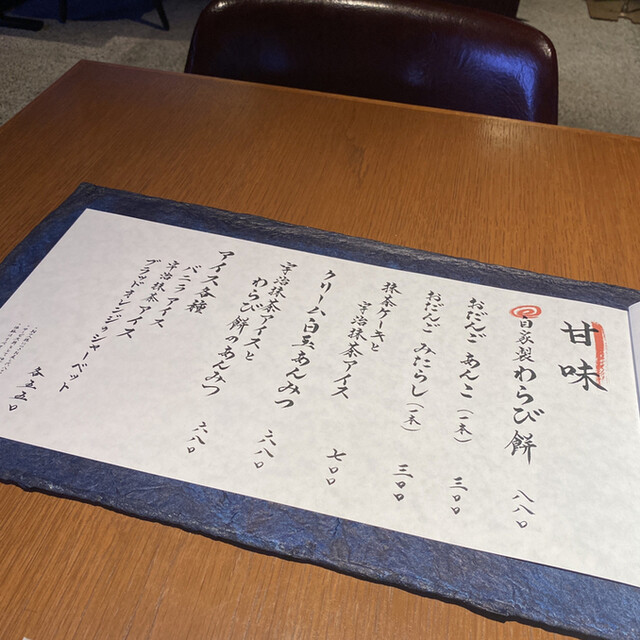 甘味
自家製わらび餅 八八〇
おだんご あんこ(一本) 三〇〇
おだんご みたらし(一本) 三〇〇
抹茶ケーキと
宇治抹茶アイス 七〇〇
クリーム白玉あんみつ 六八〇
宇治抹茶アイスと
わらび餅のあんみつ 六八〇
アイス各種
バニラアイス
宇治抹茶アイス
ブラッドオレンジシャーベット
各五五〇